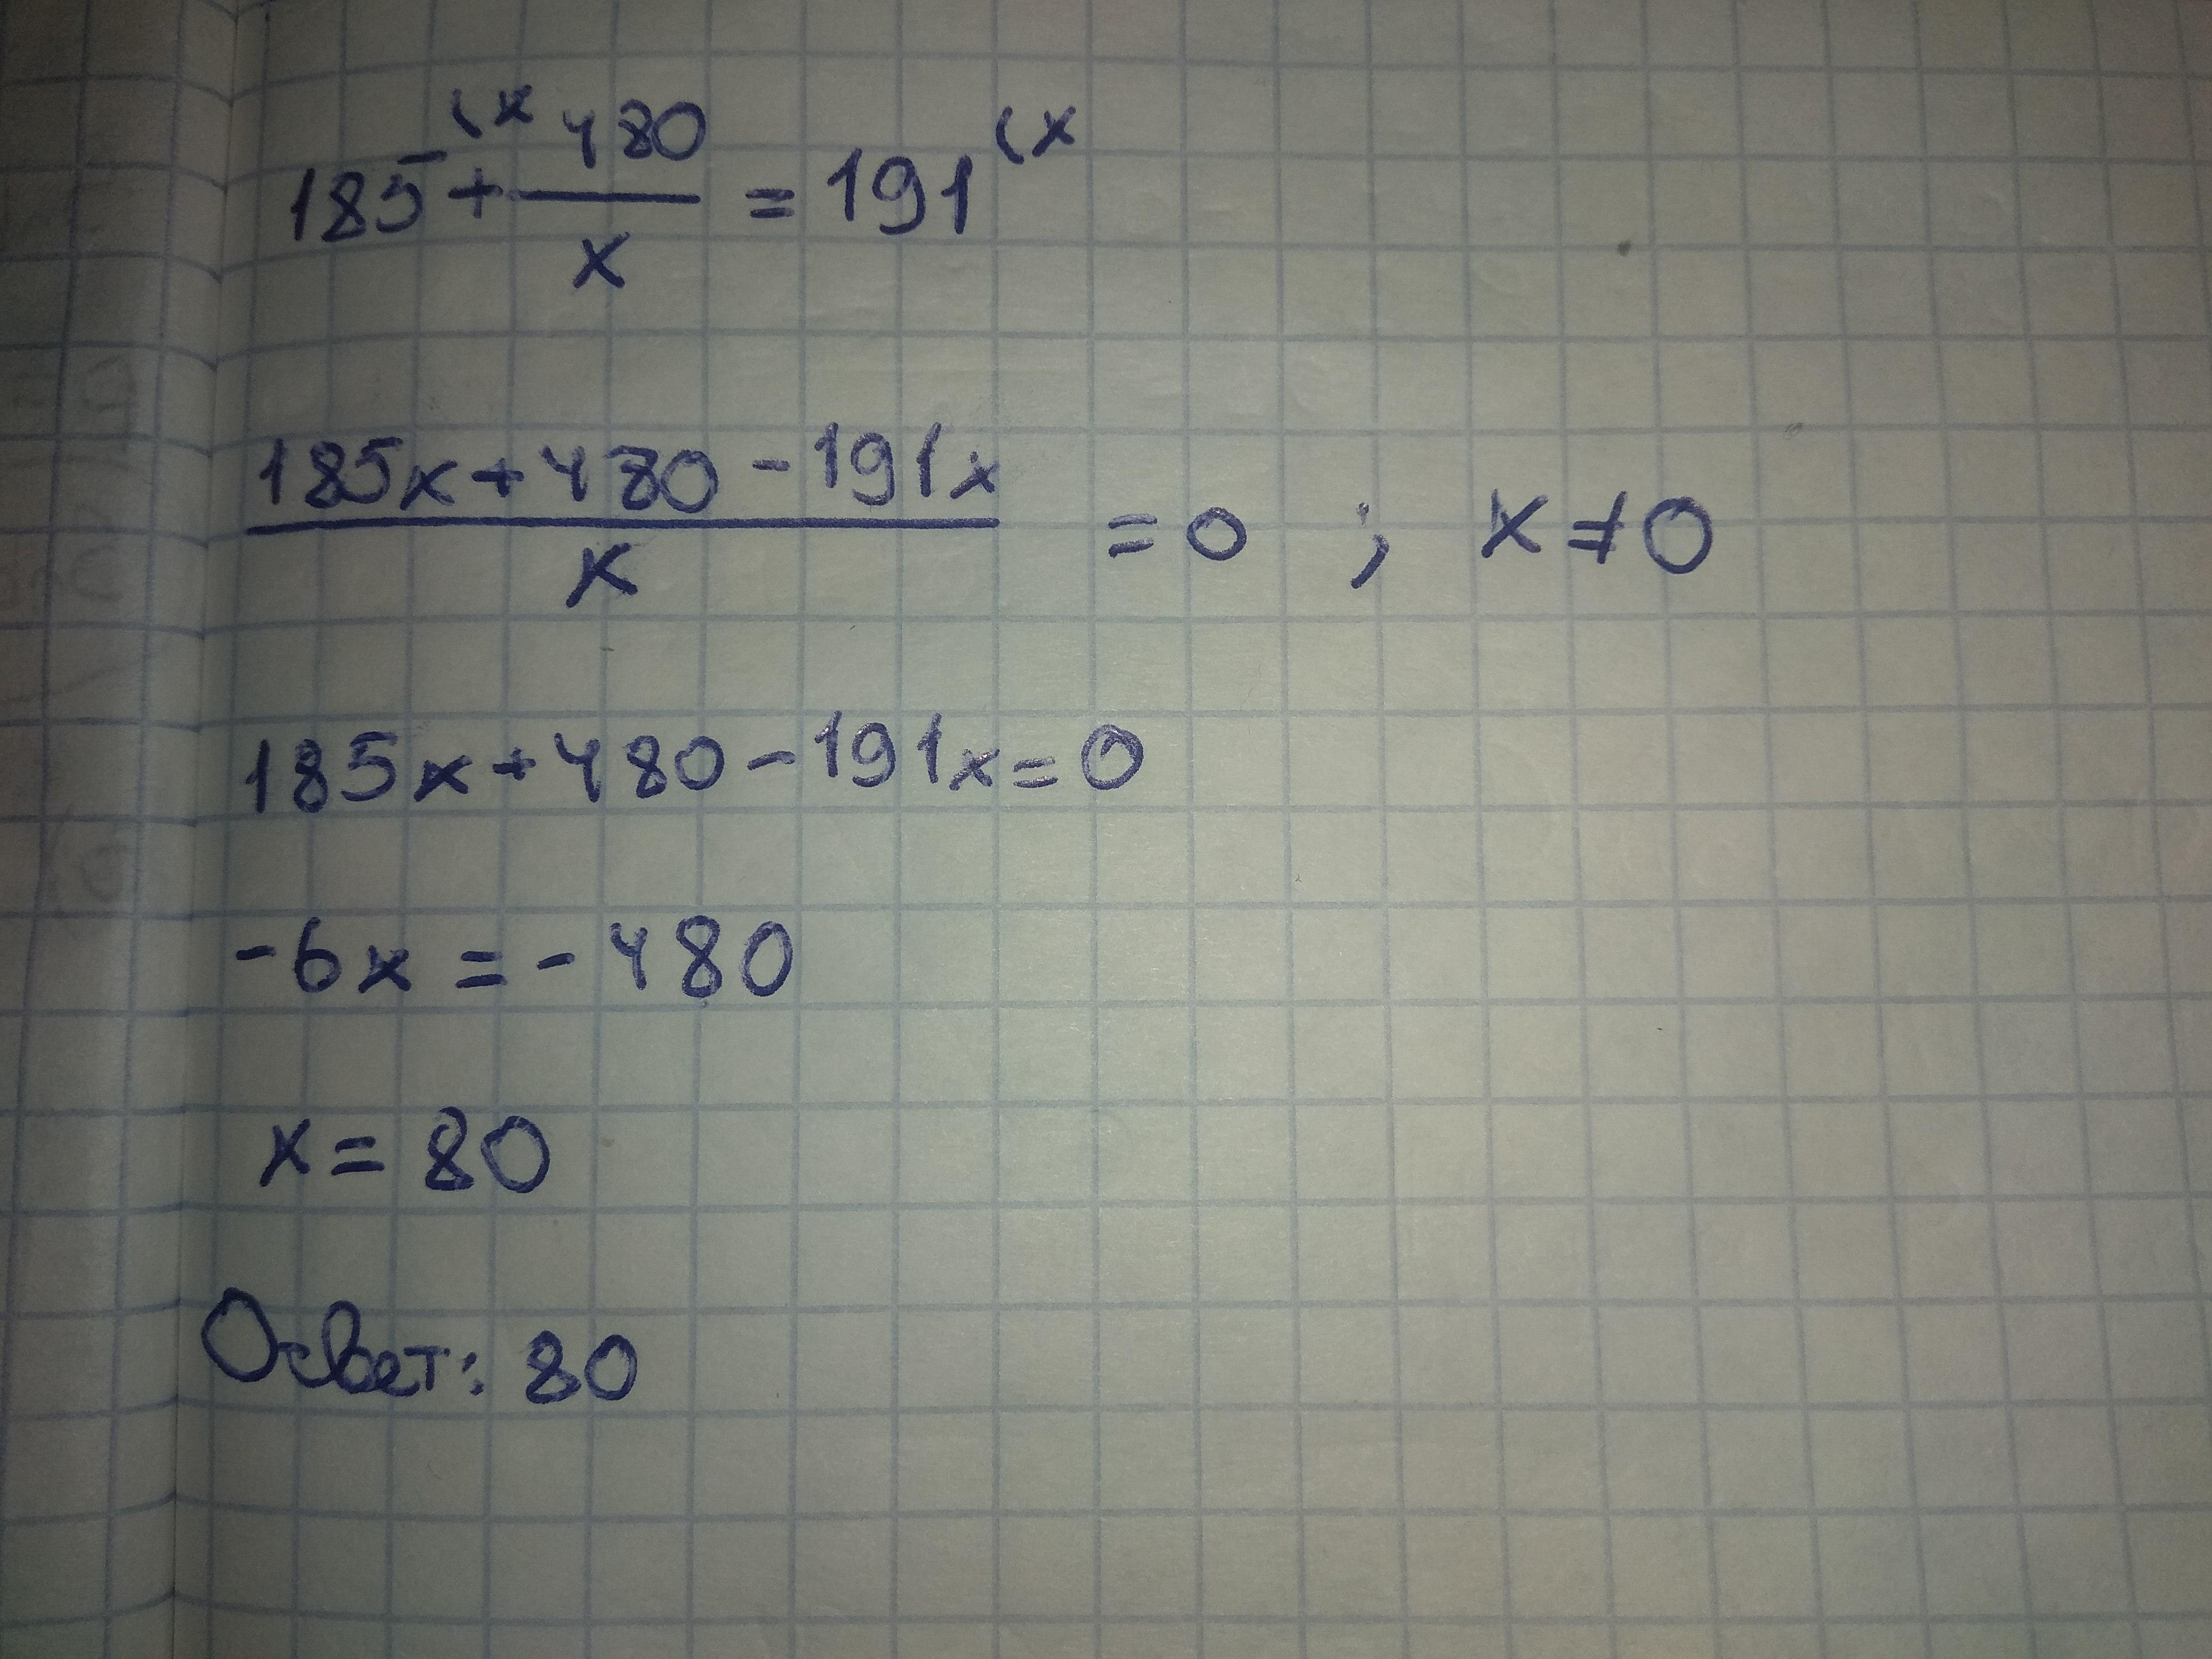 185 (x + 480/x = 191 (x
(185x + 480 - 191x)/x = 0 ; x ≠ 0
185x + 480 - 191x = 0
-6x = -480
x = 80
Ответ: 80